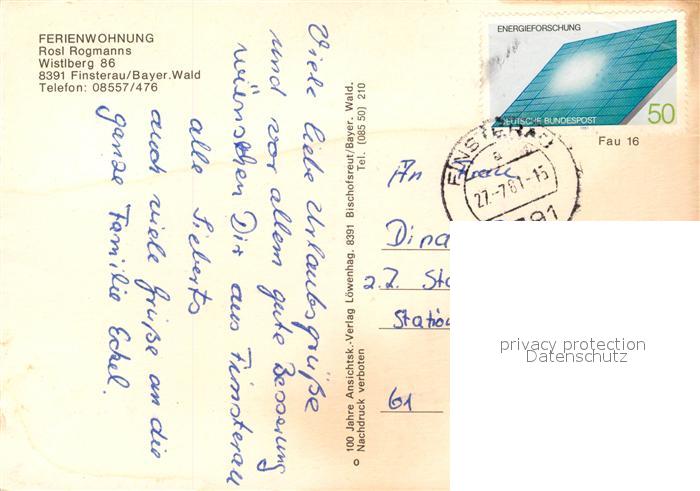 FERIENWOHNUNG
Rosl Rogmanns
Wistlberg 86
8391 Finsterau/Bayer.Wald
Telefon: 08557/476
Viele liebe Urlaubsgrüße
und vor allem gute Besserung
wünschen Dir aus Finsterau
alle Sieberts
auch viele Grüße an die
ganze Familie Eckel.
100 Jahre Ansichtsk.-Verlag Löwenhag. 8391 Bischofsreut/Bayer. Wald.
Nachdruck verboten Tel. (085 50) 210
ENERGIEFORSCHUNG
DEUTSCHE BUNDESPOST
50
1981
Fau 16
FINSTERAU
a
27.-7.81-15
8391
An Frau
Dina
z.Z. Sta
Station
61
privacy protection
Datenschutz